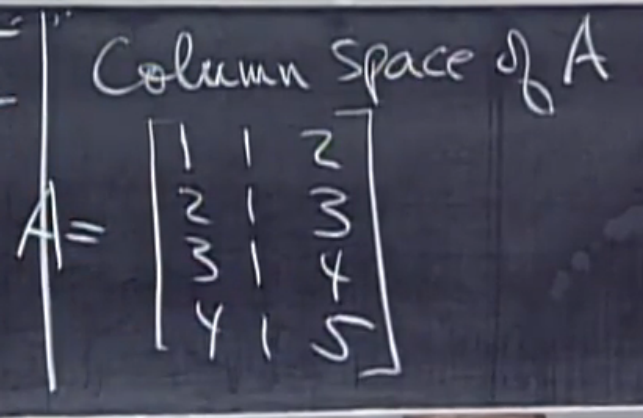 Column space of A
1 1 2
2 1 3
A= 3 1 4
4 1 5